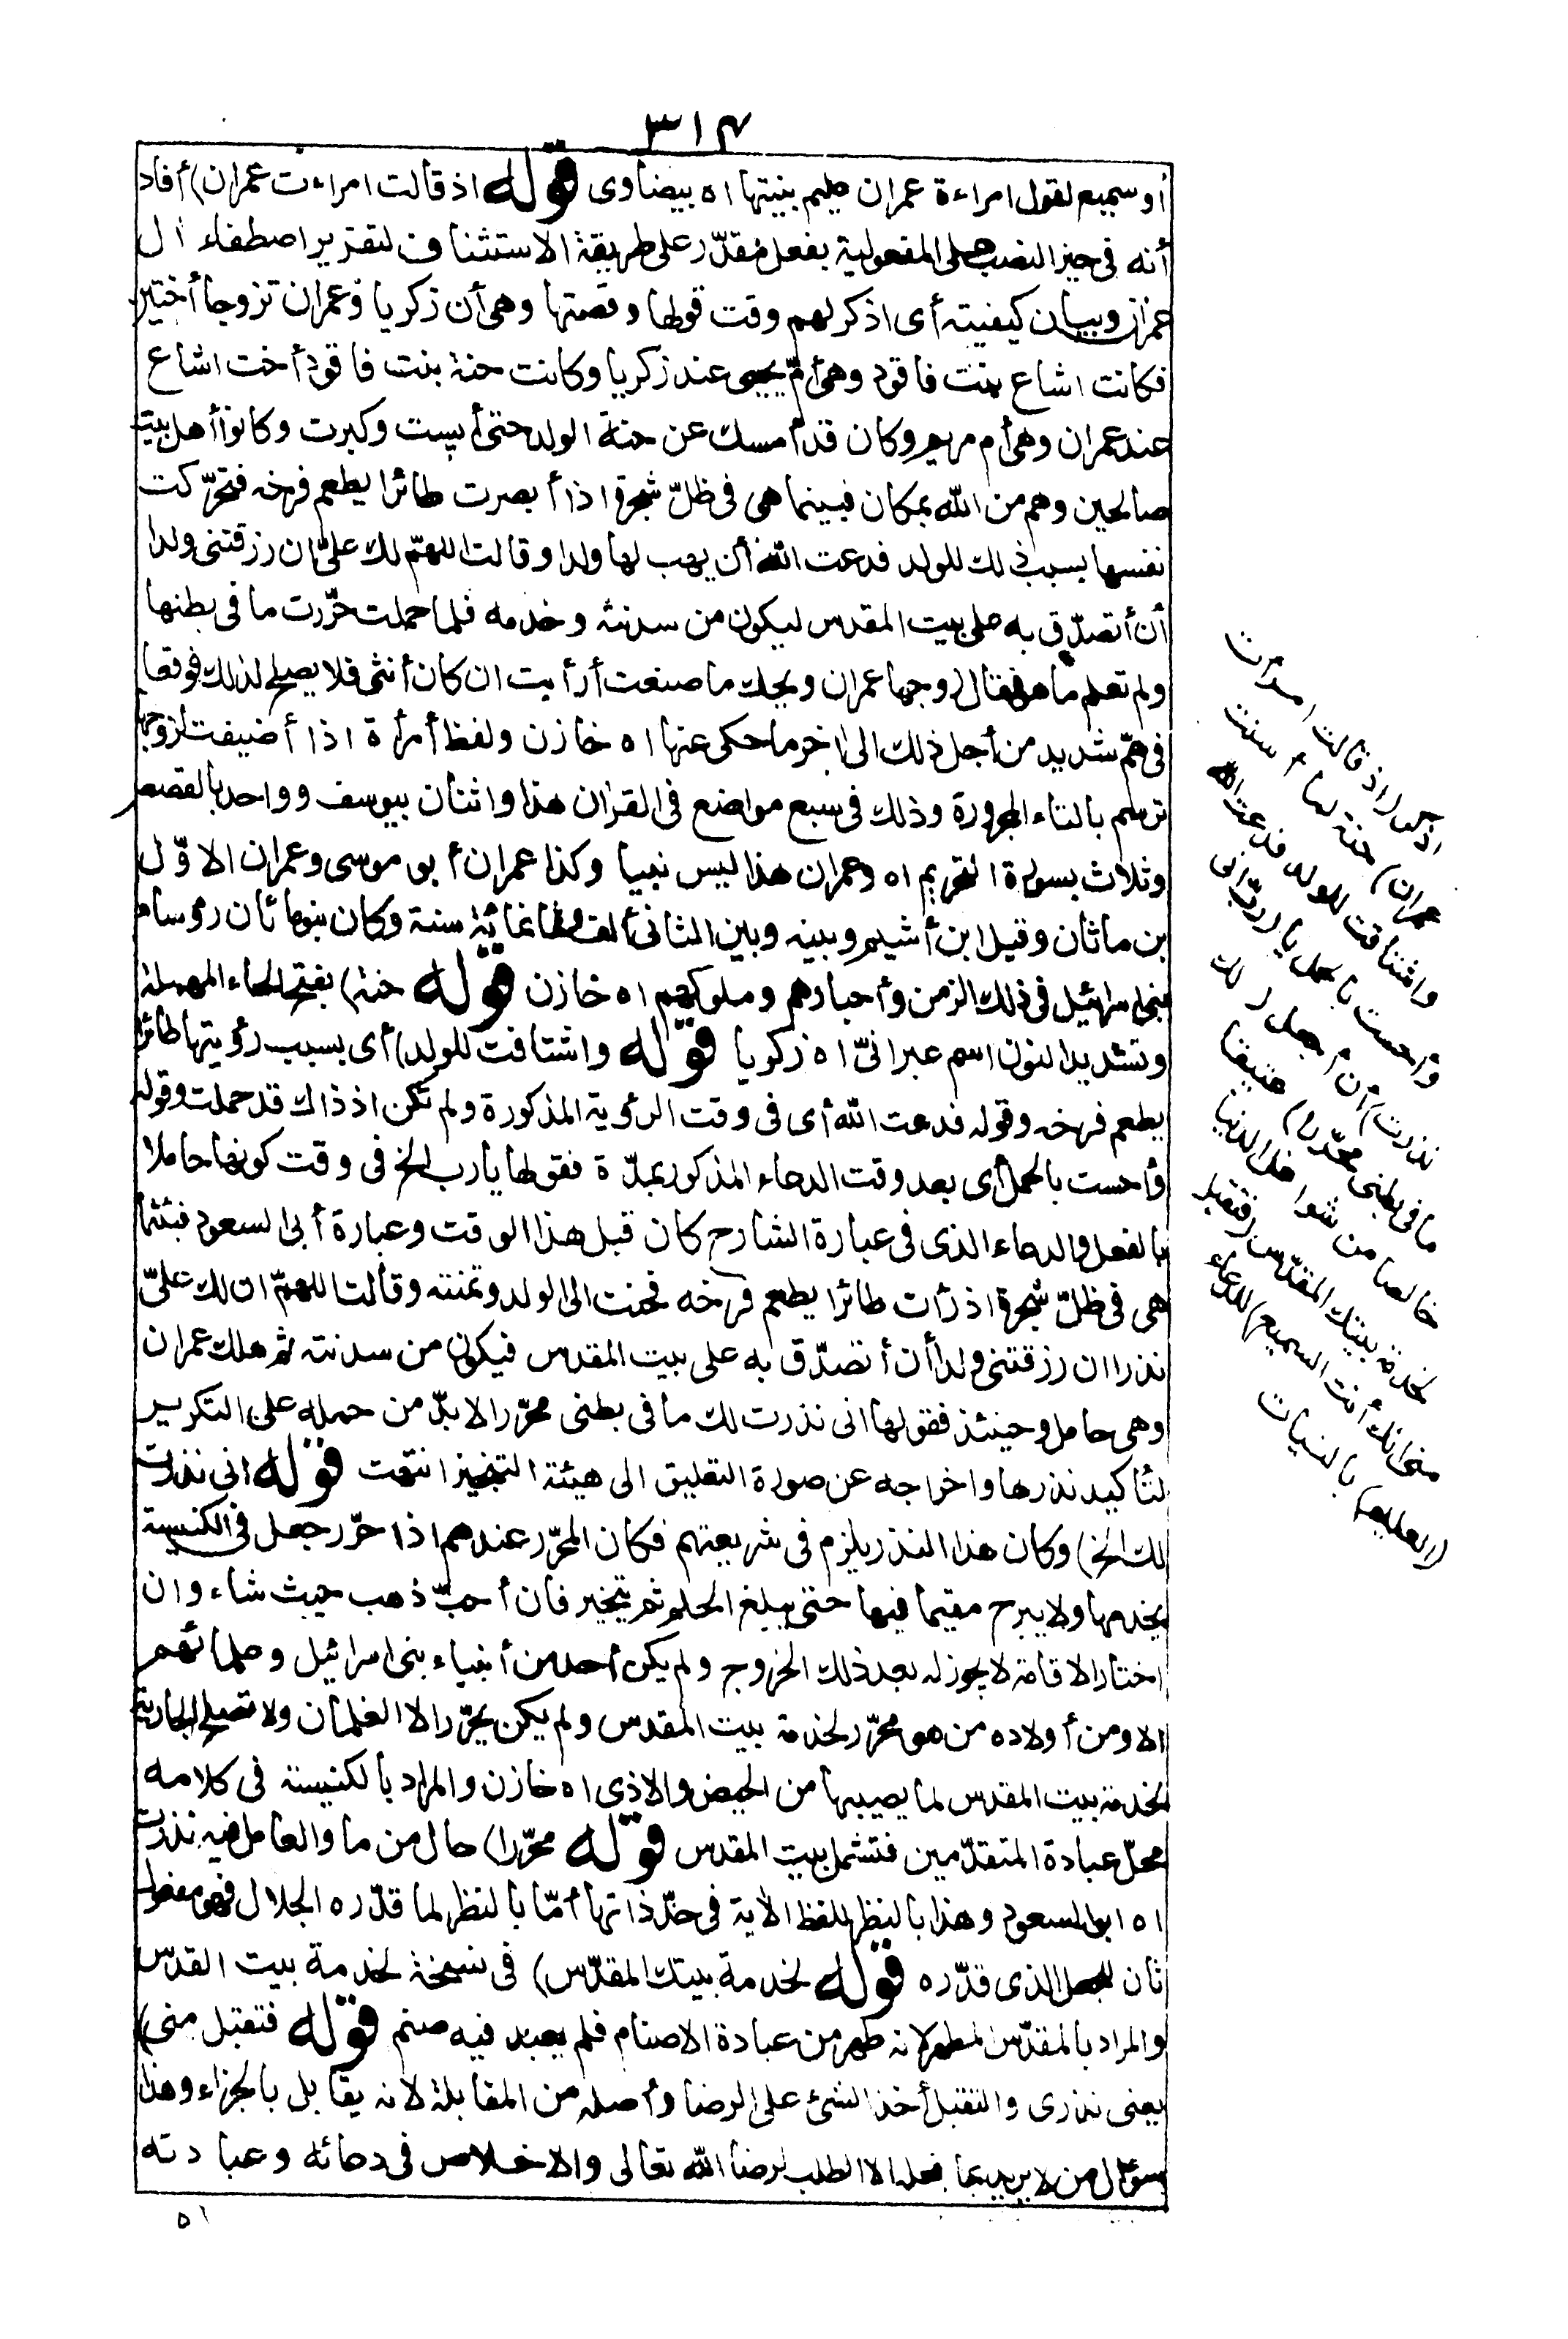 ٣١٤
أو سميع لقول امراءة عمران عليم بنيتها اه بيضاوى قوله اذ قالت امراءت عمران) أفاد
أنه فى حيز النصب على المفعولية بفعل مقدّر على طريقة الاستئناف لتقرير اصطفاء ال
عمران وبيان كيفيته أى اذكر لهم وقت قولها وقصتها وهى أن زكريا وعمران تزوجا أختين
فكانت اشاع بنت فاقود وهى أمّ يحيى عند زكريا وكانت حنة بنت فاقود أخت اشاع
عند عمران وهى أم مريم وكان قد أمسك عن حنة الولد حتى أيست وكبرت وكانوا أهل بيت
صالحين وهم من الله بمكان فبينما هى فى ظلّ شجرة اذ أبصرت طائرا يطعم فرخه فتحرّكت
نفسها بسبب ذلك للولد فدعت الله أن يهب لها ولدا وقالت اللهمّ لك علىّ ان رزقتنى ولدا
أن أتصدّق به على بيت المقدس ليكون من سدنته وخدمه فلما حملت حرّرت ما فى بطنها
ولم تعلم ما هو فقال زوجها عمران ويحك ما صنعت أرأيت ان كان أنثى فلا يصلح لذلك فوقعا
فى همّ شديد من أجل ذلك الى اخر ما حكى عنها اه خازن ولفظ أمرأة اذا أضيفت لزوجها
ترسم بالتاء المجرورة وذلك فى سبع مواضع فى القران هذا واثنان بيوسف وواحد بالقصص
وثلاث بسورة التحريم اه وعمران هذا ليس نبيا وكذا عمران أبو موسى وعمران الاوّل
بن ماثان وقيل ابن أشيم وبينه وبين الثانى ألف وثمانمائة سنة وكان بنو ماثان رؤساء
بنى اسرائيل فى ذلك الزمن وأحبارهم وملوكهم اه خازن قوله حنة) بفتح الحاء المهملة
وتشديد النون اسم عبرانىّ اه زكريا قوله واشتاقت للولد) أى بسبب رؤيتها طائرا
يطعم فرخه وقوله فدعت الله أى فى وقت الرؤية المذكورة ولم تكن اذ ذاك قد حملت وقوله
وأحست بالحمل أى بعد وقت الدعاء المذكور بمدّة فقولها يارب الخ فى وقت كونها حاملا
بالفعل والدعاء الذى فى عبارة الشارح كان قبل هذا الوقت وعبارة أبى السعود فبينما
هى فى ظلّ شجرة اذ رأت طائرا يطعم فرخه فحنت الى الولد وتمنته وقالت اللهمّ ان لك علىّ
نذرا ان رزقتنى ولدا أن أتصدّق به على بيت المقدس فيكون من سدنته ثم هلك عمران
وهى حامل وحينئذ فقولها انى نذرت لك ما فى بطنى محرّرا لا بدّ من حمله على التكرير
لتأكيد نذرها واخراجه عن صورة التعليق الى هيئة التنجيز انتهت قوله انى نذرت
لك الخ) وكان هذا النذر يلزم فى شريعتهم فكان المحرّر عندهم اذا حرّر جعل فى الكنيسة
يخدمها ولا يبرح مقيما فيها حتى يبلغ الحلم ثم يتخير فان أحبّ ذهب حيث شاء وان
اختار الاقامة لا يجوز له بعد ذلك الخروج ولم يكن أحد من أنبياء بنى اسرائيل وعلمائهم
الا ومن أولاده من هو محرّر لخدمة بيت المقدس ولم يكن يحرّر الا الغلمان ولا تصلح الجارية
لخدمة بيت المقدس لما يصيبها من الحيض والاذى اه خازن والمراد بالكنيسة فى كلامه
محلّ عبادة المتقدّمين فتشمل بيت المقدس قوله محرّرا) حال من ما والعامل فيه نذرت
اه ابو السعود وهذا بالنظر للفظ الأية فى حدّ ذاتها أمّا بالنظر لما قدّره الجلال فهو مفعول
ثان للجعل الذى قدّره قوله لخدمة بيتك المقدّس) فى نسخة لخدمة بيت القدس
والمراد بالمقدّس المطهر لانه طهر من عبادة الاصنام فلم يعبد فيه صنم قوله فتقبل منى)
يعنى نذرى والتقبل أخذ الشئ على الرضا وأصله من المقابلة لانه يقابل بالجزاء وهذا
سؤال من لا يريد بما فعله الا الطلب لرضا الله تعالى والاخلاص فى دعائه وعبادته
اه
اذكر (اذ قالت امرأت
عمران) حنة لما أسنت
واشتاقت للولد فدعت الله
وأحست بالحمل يا (ربّ انى
نذرت) أن أجعل (لك
ما فى بطنى محرّرا) عتيقا
خالصا من شواغل الدنيا
لخدمة بيتك المقدّس (فتقبل
منى انك أنت السميع) للدعاء
(العليم) بالنيات